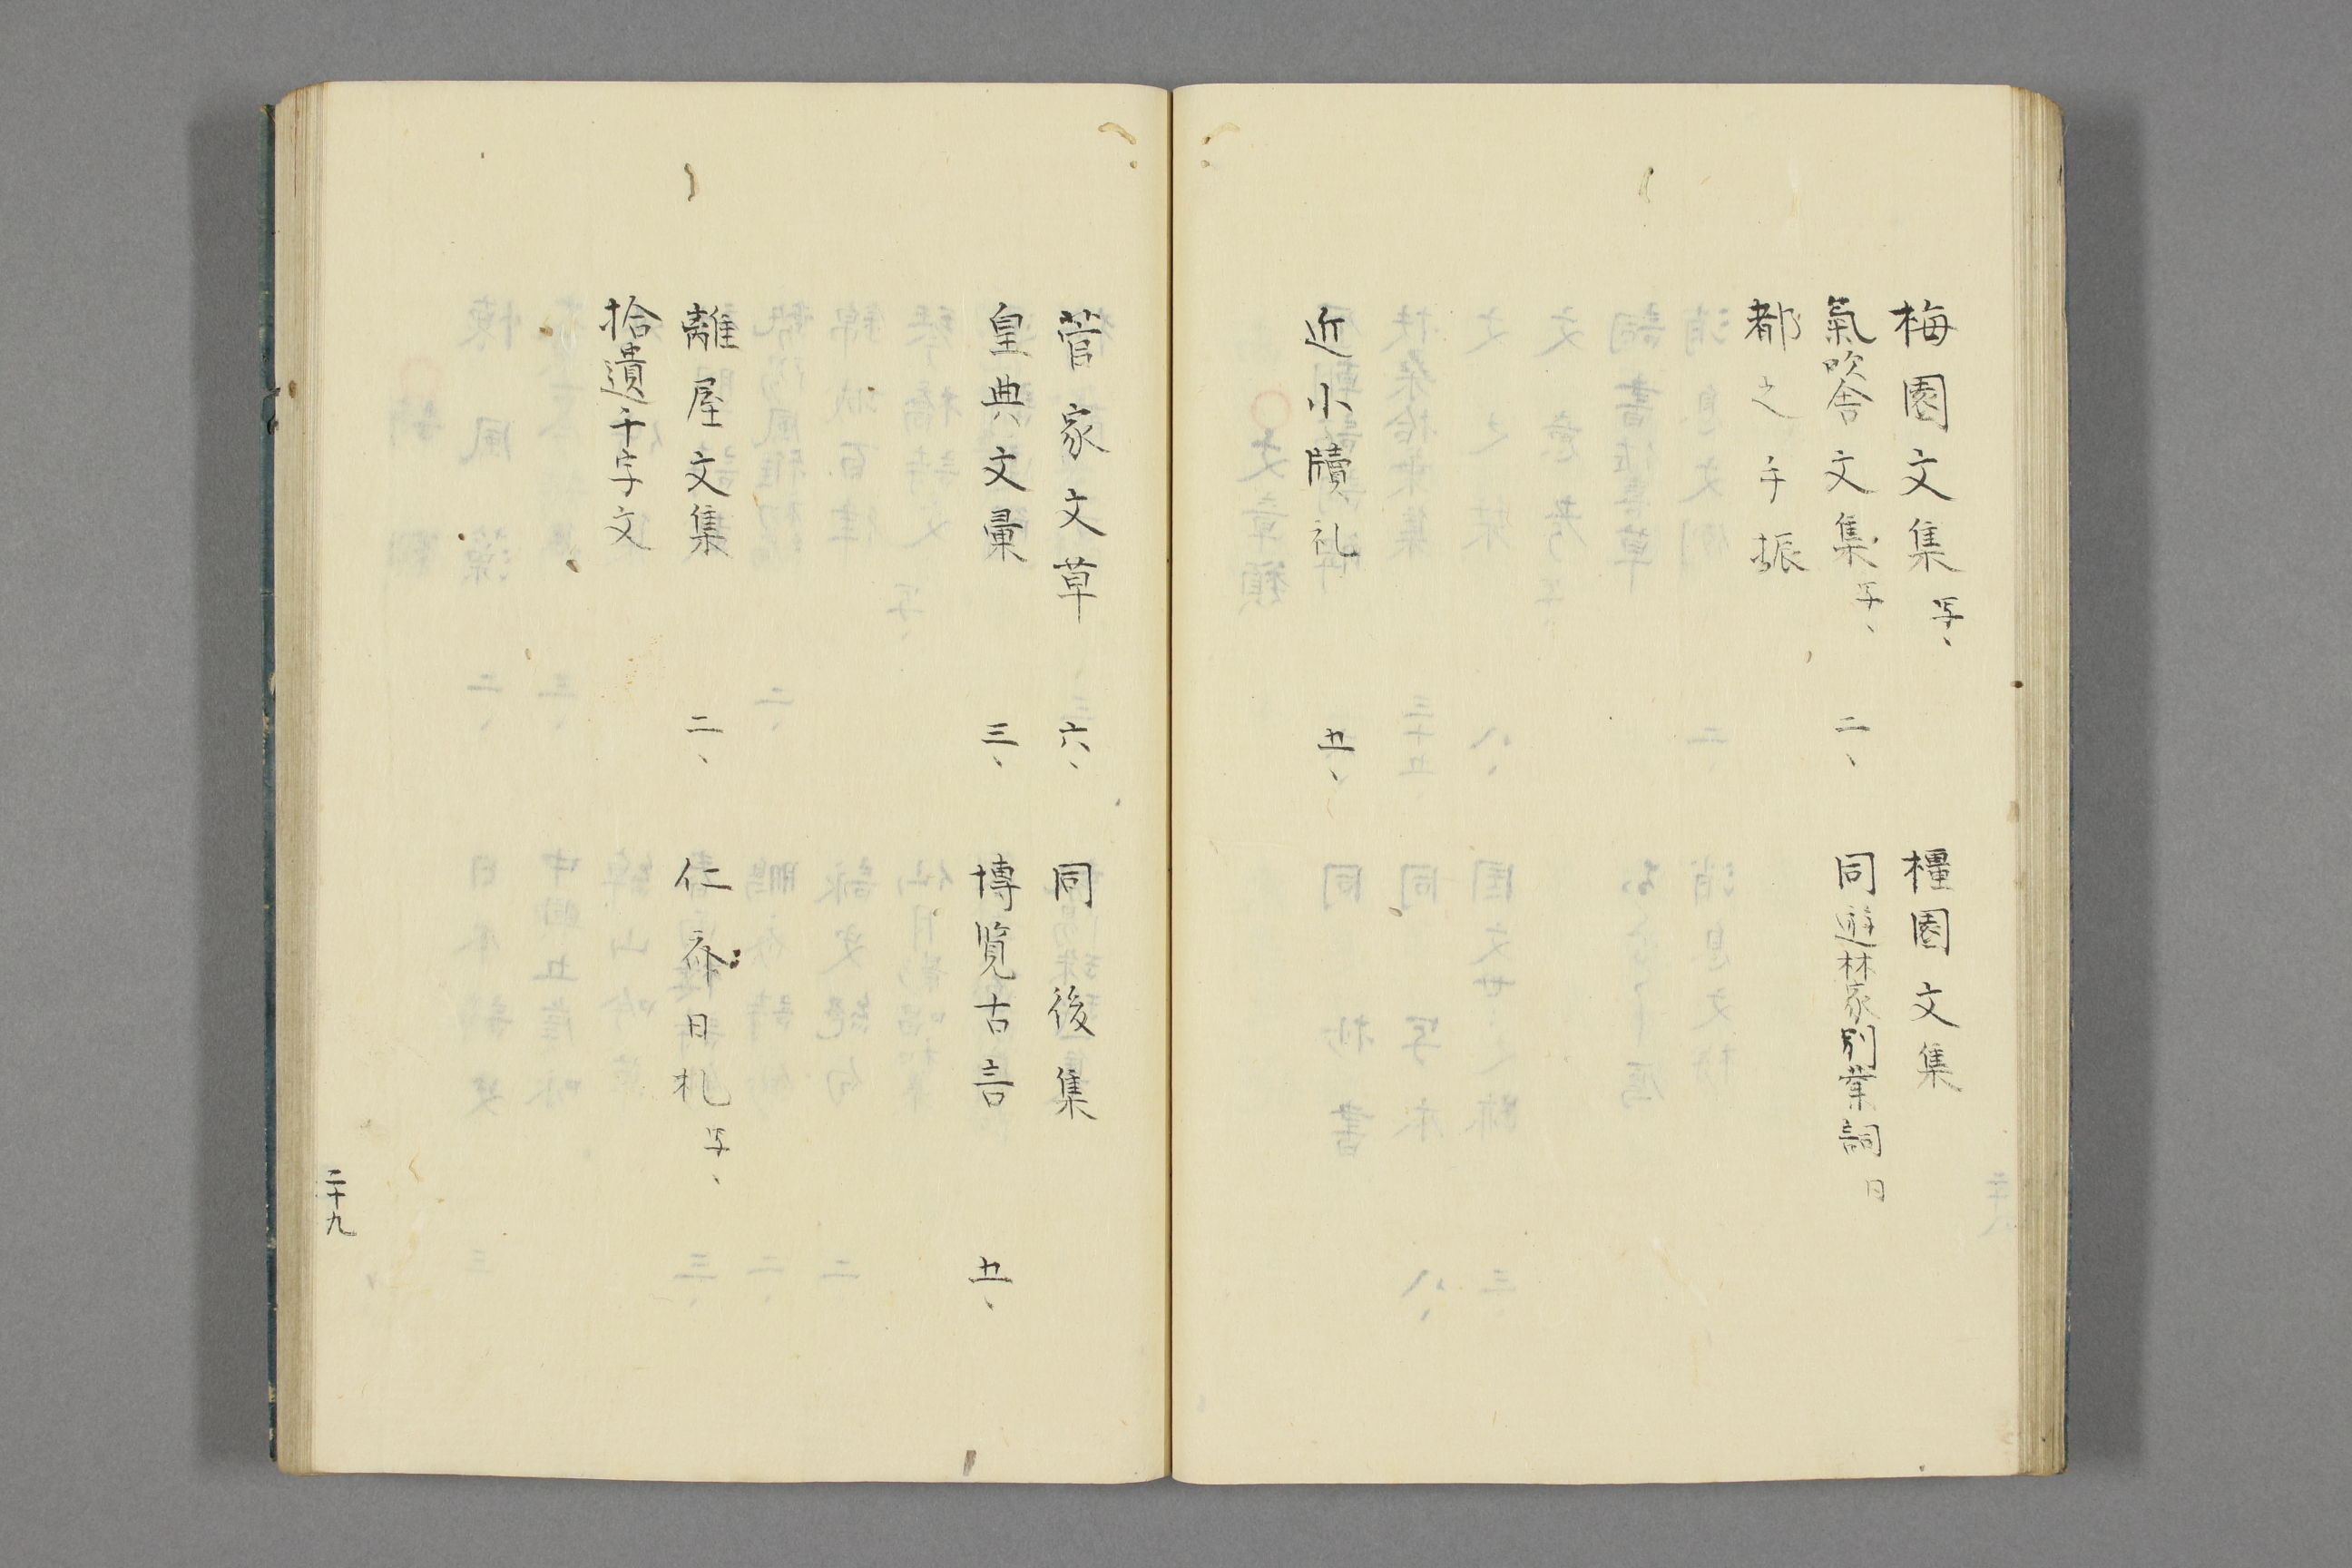 梅園文集 写、
橿園文集
氣吹舎文集 写、 二、
同遊林家別業詞 同
都之手振
近小牘礼 五、
菅家文草 六、
同後集
皇典文彙 三、
博覧古言 五、
離屋文集 二、
仁斎日札 写、
拾遺千字文
二十九